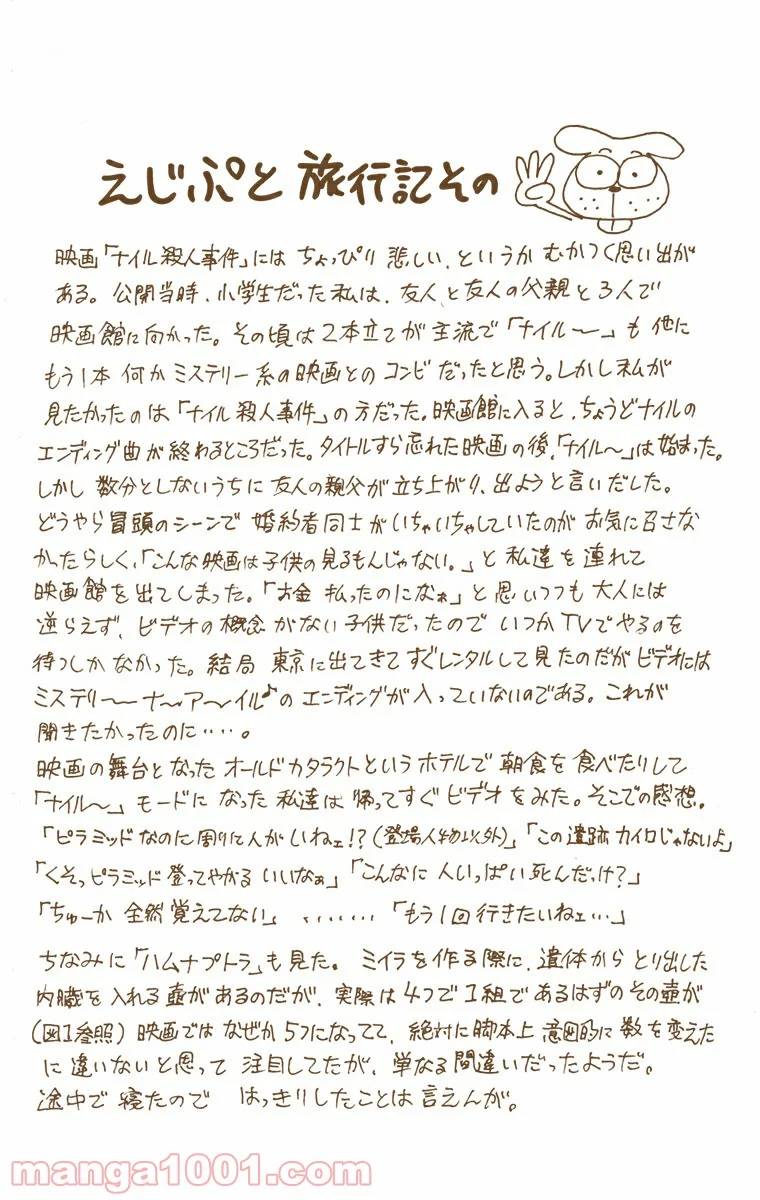 えじぷと旅行記その
映画「ナイル殺人事件」にはちょっぴり悲しい、というかむかつく思い出が
ある。公開当時、小学生だった私は、友人と友人の父親と3人で
映画館に向かった。その頃は2本立てが主流で「ナイル〜」も他に
もう1本何かミステリー系の映画とのコンビだったと思う。しかし私が
見たかったのは「ナイル殺人事件」の方だった。映画館に入ると、ちょうどナイルの
エンディング曲が終わるところだった。タイトルすら忘れた映画の後、「ナイル〜」は始まった。
しかし数分としないうちに友人の親父が立ち上がり、出ようと言いだした。
どうやら冒頭のシーンで婚約者同士がいちゃいちゃしていたのがお気に召さな
かったらしく、「こんな映画は子供の見るもんじゃない。」と私達を連れて
映画館を出てしまった。「お金払ったのになぁ」と思いつつも大人には
逆らえず、ビデオの概念がない子供だったのでいつかTVでやるのを
待つしかなかった。結局東京に出てきてすぐレンタルして見たのだがビデオには
ミステリ〜ナ〜ア〜イル♪のエンディングが入っていないのである。これが
聞きたかったのに‥‥。
映画の舞台となったオールドカタラクトというホテルで朝食を食べたりして
「ナイル〜」モードになった私達は帰ってすぐビデオをみた。そこでの感想。
「ピラミッドなのに周りに人がいねェ!?(登場人物以外)」「この遺跡カイロじゃないよ」
「くそっピラミッド登ってやがるいいなぁ」「こんなに人いっぱい死んだっけ?」
「ちゅーか全然覚えてない」‥‥‥‥「もう1回行きたいねェ…」
ちなみに「ハムナプトラ」も見た。ミイラを作る際に、遺体からとり出した
内臓を入れる壺があるのだが、実際は4つで1組であるはずのその壺が
(図1参照)映画ではなぜか5つになってて、絶対に脚本上意図的に数を変えた
に違いないと思って注目してたが、単なる間違いだったようだ。
途中で寝たのではっきりしたことは言えんが。
manga1001.com